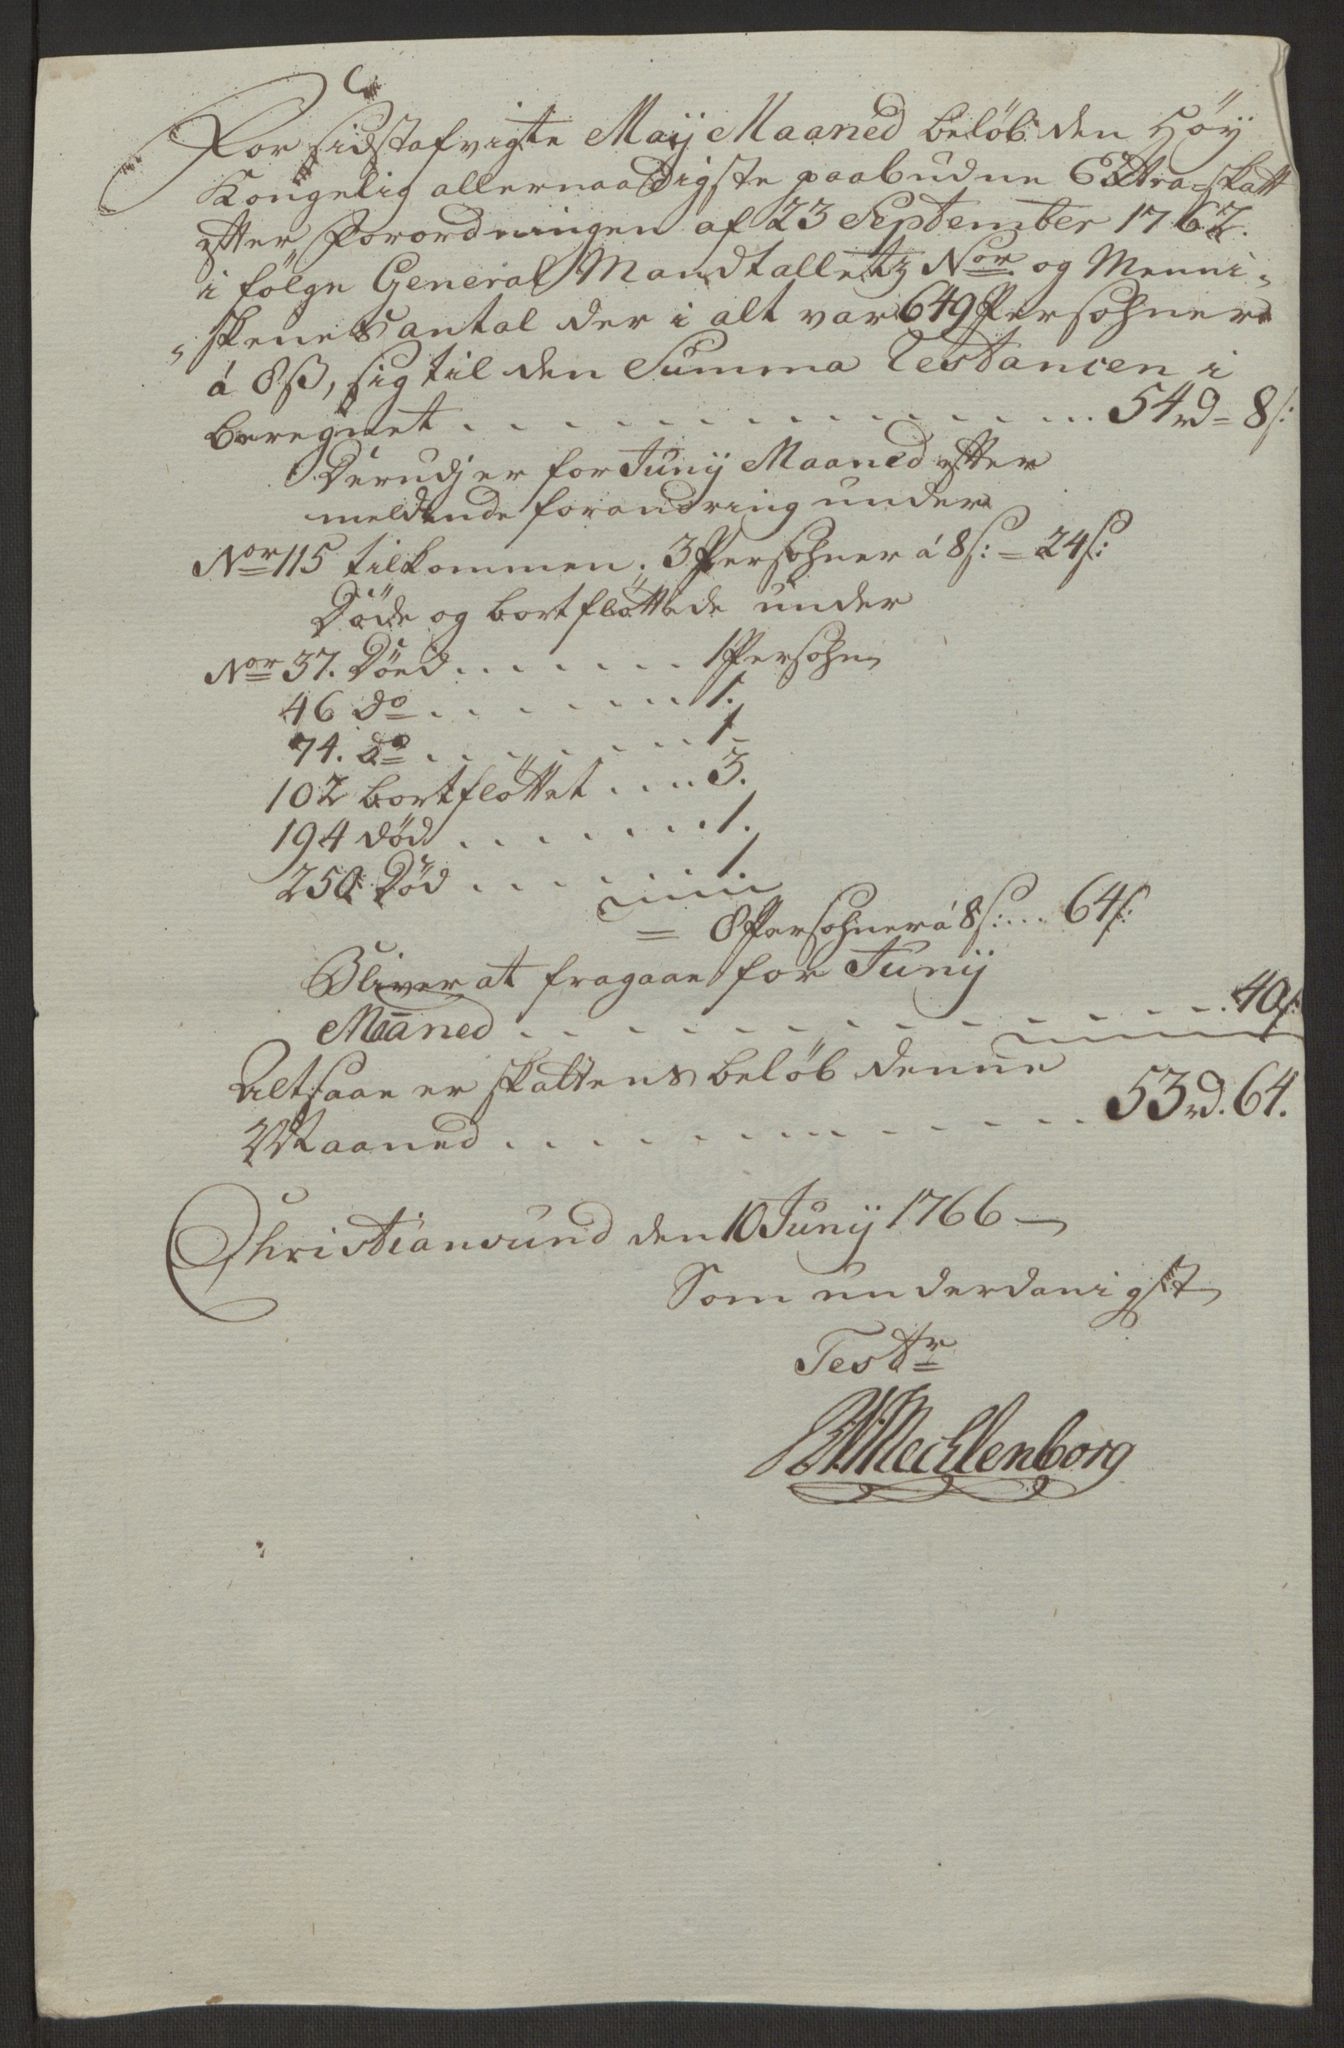 For sidstafvigte Maij Maaned beløb den Høy
Kongelig allernaadigste paabudne Extra Skatt
efter Forordningen af 23 September 1762.
i følge General Mandtalletz Nor og Menni-
skenes antal der i alt var 649 Persohner
á 8ß, sig til den Summa Testancen i
beregnet . . . . . . . . . 54rd = 8s:
Derudj er for Junij Maaned efter
meldende forandring under
Nor 115 tilkommen. 3 Persohner á 8s: = 24s:
Döde og bortfløttede under
Nor 37. Döed . . . . . . . 1 Persohn
46 do . . . . . . . 1.
74. do . . . . . . . 1
102 bortfløttet . . . . 3.
194 død . . . . . . . 1.
250 Død . . . . . . . 1
= 8 Persohner á 8s: . . . 64s:
Bliver at fragaae for Junij
Maaned . . . . . . . . . . 40s:
Altsaa er skattens beløb denne
Maaned . . . . . . . . . . 53rd. 64.
Christiansund den 10 Junij 1766 —
Som underdanigst
Testr
Mechlenborg